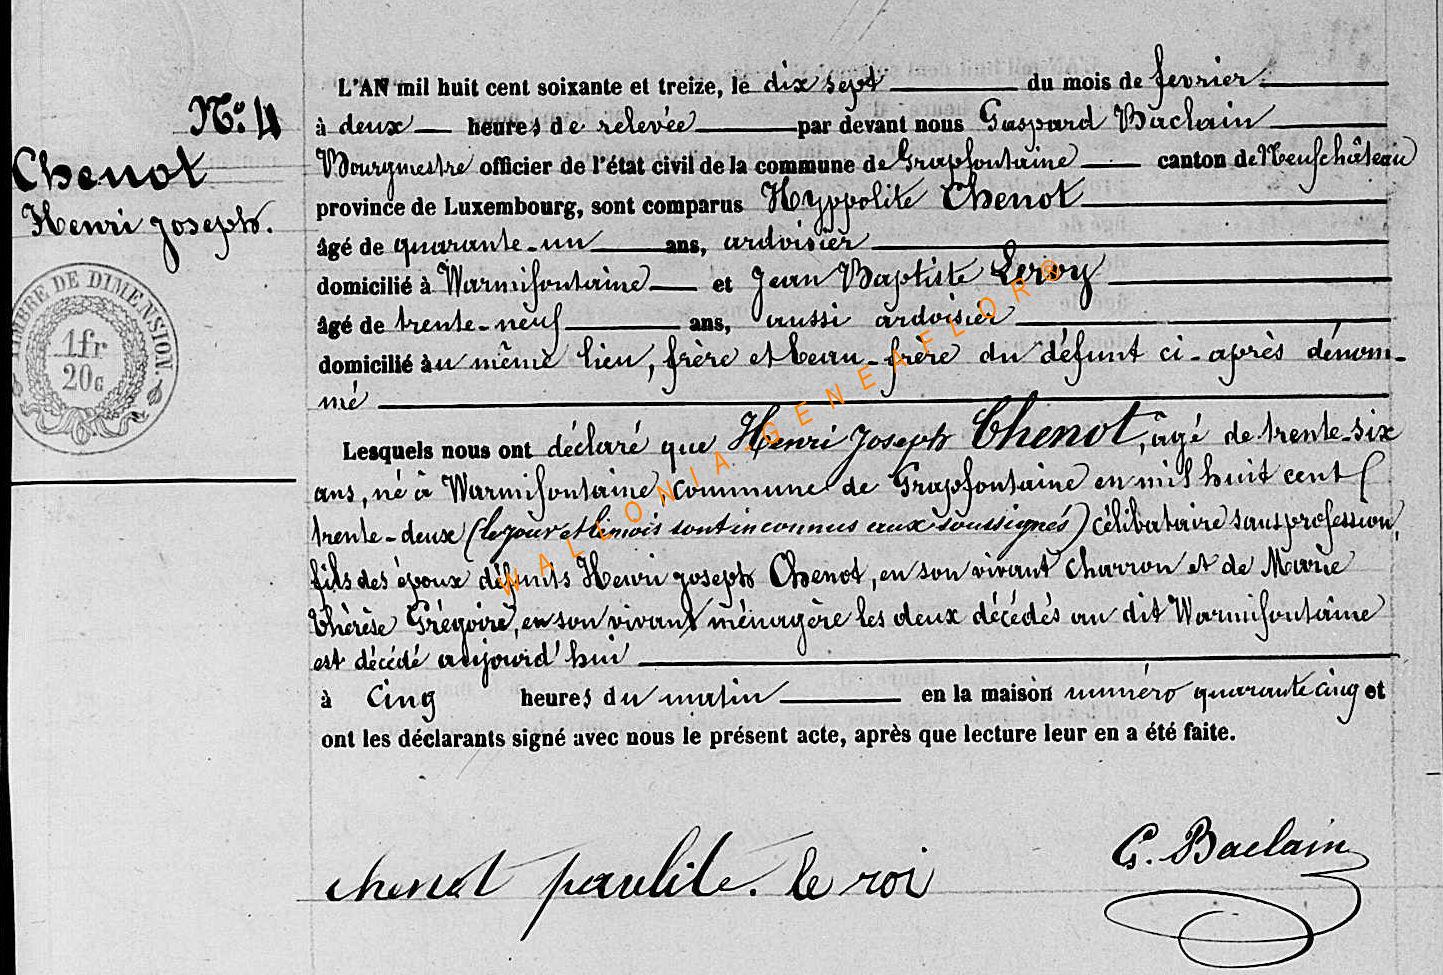 L'AN mil huit cent soixante et treize, le dix sept du mois de fevrier
N° 4
à deux heures de relevée par devant nous Gaspard Baclain
Chenot
Bourgmestre officier de l'état civil de la commune de Grapfontaine canton de Neufchâteau
Henri Joseph.
province de Luxembourg, sont comparus Hyppolite Chenot
âgé de quarante-un ans, ardoisier
domicilié à Warmifontaine et Jean Baptiste Leroy
âgé de trente-neuf ans, aussi ardoisier
domicilié au même lieu, frère et beau-frère du défunt ci-après dénom-
mé
TIMBRE DE DIMENSION
1 fr
20 c
Lesquels nous ont déclaré que Henri Joseph Chenot, âgé de trente-six
ans, né à Warmifontaine, commune de Grapfontaine en mil huit cent
trente-deux (le jour et le mois sont inconnus aux soussignés) célibataire sans profession,
fils des époux défunts Henri Joseph Chenot, en son vivant charron et de Marie
Thérèse Grégoire, en son vivant ménagère les deux décédés au dit Warmifontaine
est décédé aujourd'hui
à cinq heures du matin en la maison numéro quarante cinq et
ont les déclarants signé avec nous le présent acte, après que lecture leur en a été faite.
chenot paulite. le roi
G. Baclain
WALLONIA GENEAFLOR ©